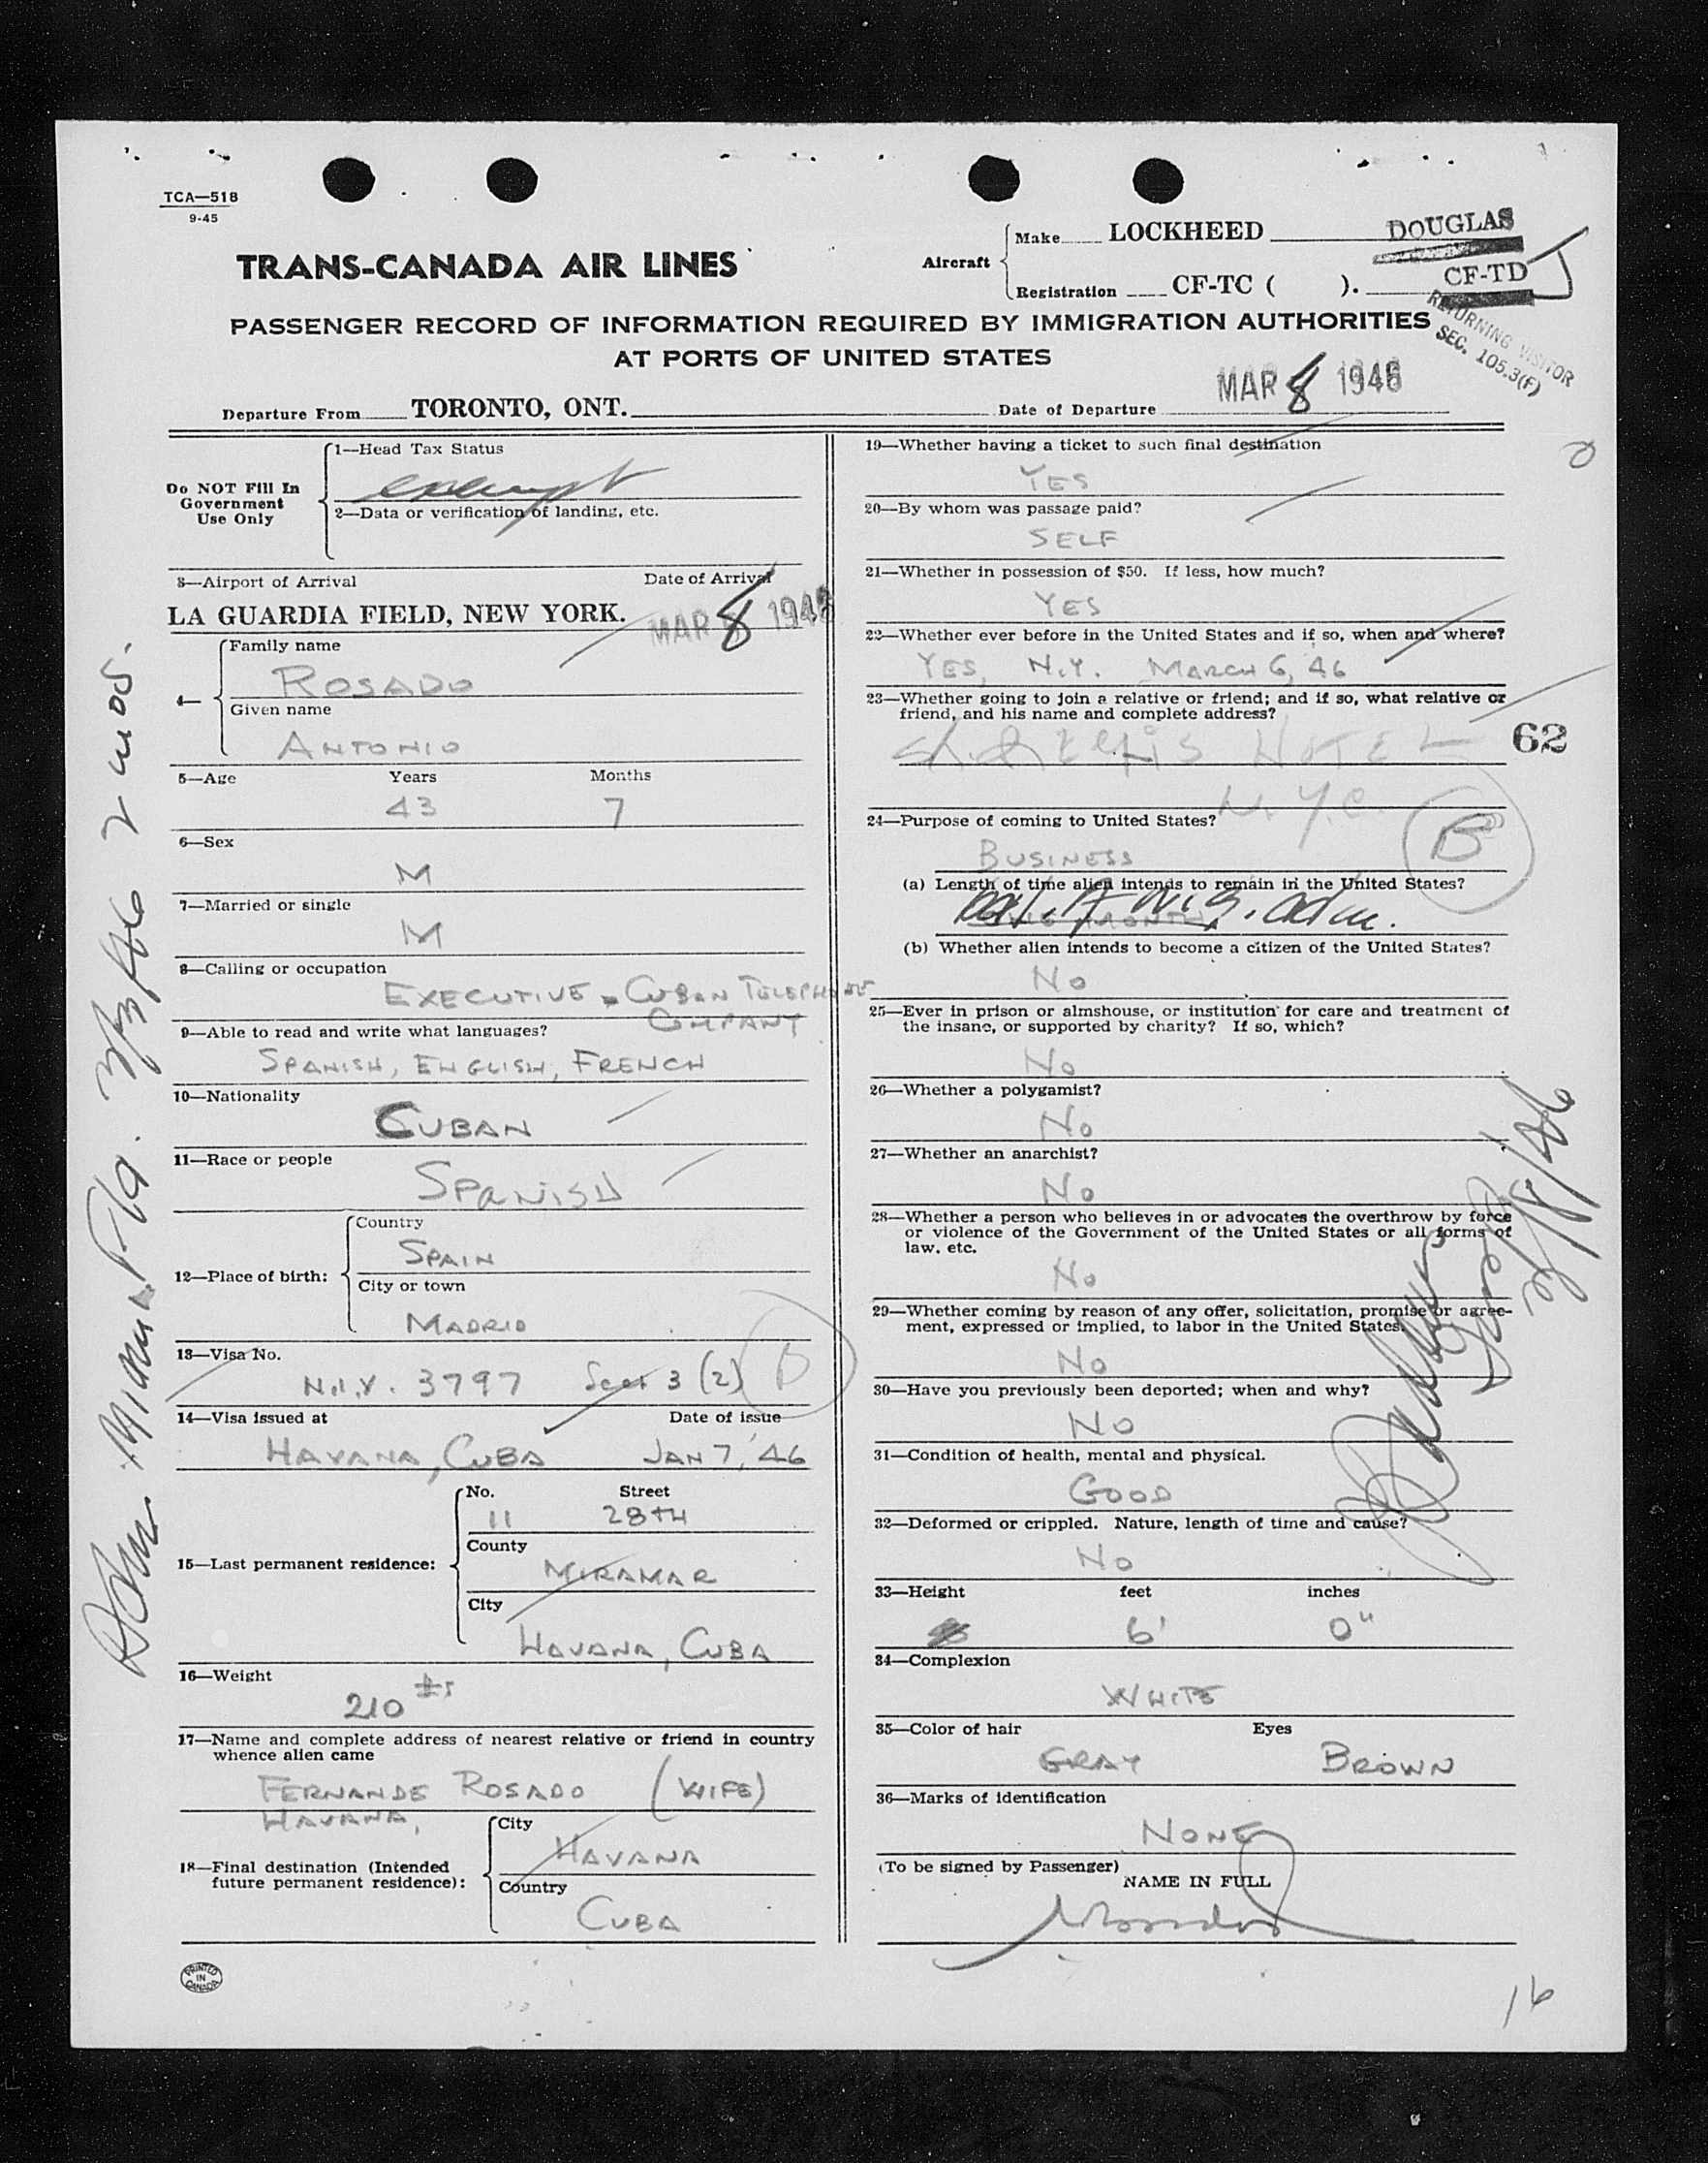 TCA—518
9-45
TRANS-CANADA AIR LINES
Aircraft
Make LOCKHEED DOUGLAS
Registration CF-TC ( ). CF-TD
PASSENGER RECORD OF INFORMATION REQUIRED BY IMMIGRATION AUTHORITIES
AT PORTS OF UNITED STATES
RETURNING VISITOR
SEC. 105.3(F)
Departure From TORONTO, ONT. Date of Departure MAR 8 1946
Do NOT Fill In
Government
Use Only
1—Head Tax Status
exempt
2—Data or verification of landing, etc.
3—Airport of Arrival Date of Arrival
LA GUARDIA FIELD, NEW YORK. MAR 8 1946
4—
Family name
ROSADO
Given name
ANTONIO
5—Age Years Months
43 7
6—Sex
M
7—Married or single
M
8—Calling or occupation
EXECUTIVE - CUBAN TELEPHONE
COMPANY
9—Able to read and write what languages?
SPANISH, ENGLISH, FRENCH
10—Nationality
CUBAN
11—Race or people
SPANISH
12—Place of birth:
Country
SPAIN
City or town
MADRID
13—Visa No.
N.I.V. 3797 Sect 3 (2)
14—Visa issued at Date of issue
HAVANA, CUBA JAN 7, '46
15—Last permanent residence:
No. Street
11 28TH
County
MIRAMAR
City
HAVANA, CUBA
16—Weight
210 #s
17—Name and complete address of nearest relative or friend in country
whence alien came
FERNANDE ROSADO (WIFE)
HAVANA,
18—Final destination (Intended
future permanent residence):
City
HAVANA
Country
CUBA
PRINTED
IN
CANADA
Adm. Miami Fla. 3/3/46 2 mos.
19—Whether having a ticket to such final destination
YES
20—By whom was passage paid?
SELF
21—Whether in possession of $50. If less, how much?
YES
22—Whether ever before in the United States and if so, when and where?
YES, N.Y. MARCH 6, 46
23—Whether going to join a relative or friend; and if so, what relative or
friend, and his name and complete address?
HOTEL
N.Y.C.
62
24—Purpose of coming to United States?
BUSINESS
B
(a) Length of time alien intends to remain in the United States?
adm.
(b) Whether alien intends to become a citizen of the United States?
NO
25—Ever in prison or almshouse, or institution for care and treatment of
the insane, or supported by charity? If so, which?
NO
26—Whether a polygamist?
NO
27—Whether an anarchist?
NO
28—Whether a person who believes in or advocates the overthrow by force
or violence of the Government of the United States or all forms of
law, etc.
NO
29—Whether coming by reason of any offer, solicitation, promise or agree-
ment, expressed or implied, to labor in the United States.
NO
30—Have you previously been deported; when and why?
NO
31—Condition of health, mental and physical.
GOOD
32—Deformed or crippled. Nature, length of time and cause?
NO
3/8/46
33—Height feet inches
6' 0"
34—Complexion
WHITE
35—Color of hair Eyes
GRAY BROWN
36—Marks of identification
NONE
(To be signed by Passenger)
NAME IN FULL
16